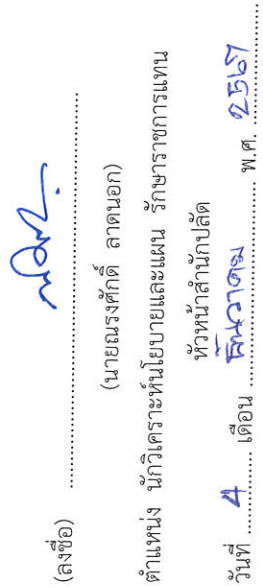 (ลงชื่อ) ........................................
(นายณรงศักดิ์ ลาดนอก)
ตำแหน่ง นักวิเคราะห์นโยบายและแผน รักษาราชการแทน
หัวหน้าสำนักปลัด
วันที่ ..... 4 ..... เดือน ..... ธันวาคม ..... พ.ศ. ..... 2567 .....